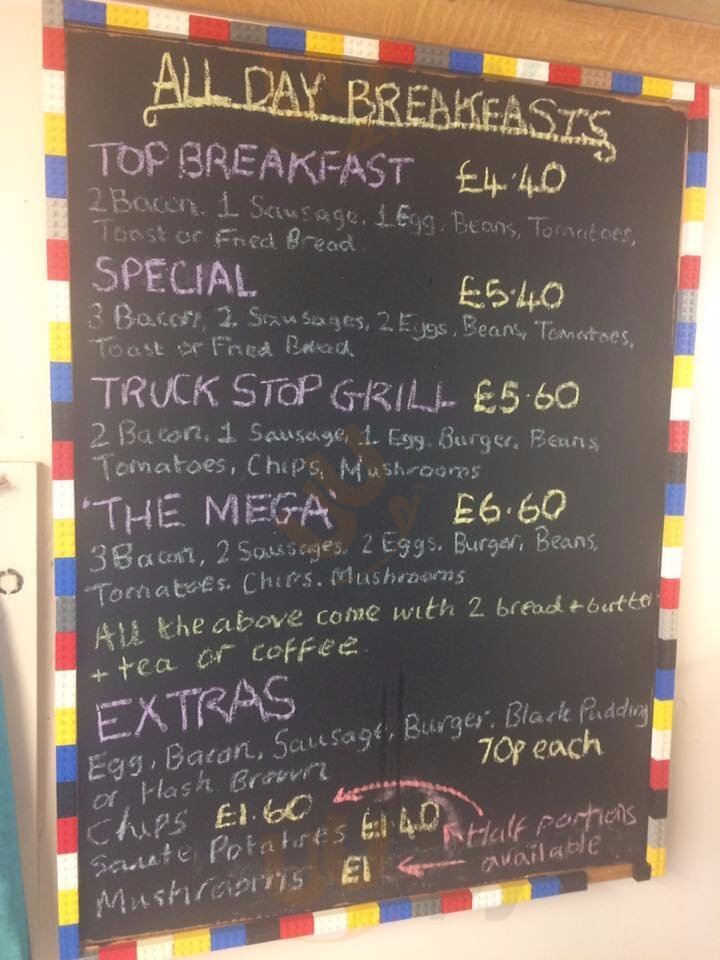 ALL DAY BREAKFASTS
TOP BREAKFAST £4.40
2 Bacon. 1 Sausage. 1 Egg, Beans, Tomatoes,
Toast or Fried Bread.
SPECIAL £5.40
3 Bacon, 2 Sausages, 2 Eggs, Beans, Tomatoes,
Toast or Fried Bread
TRUCK STOP GRILL £5.60
2 Bacon, 1 Sausage, 1 Egg, Burger, Beans,
Tomatoes, Chips, Mushrooms
THE MEGA £6.60
3 Bacon, 2 Sausages, 2 Eggs, Burger, Beans,
Tomatoes. Chips. Mushrooms
All the above come with 2 bread + butter
+ tea or coffee.
EXTRAS
Egg, Bacon, Sausage, Burger, Black Pudding
or Hash Brown 70p each
Chips £1.60
Saute Potatoes £1.40 Half portions
available
Mushrooms £1